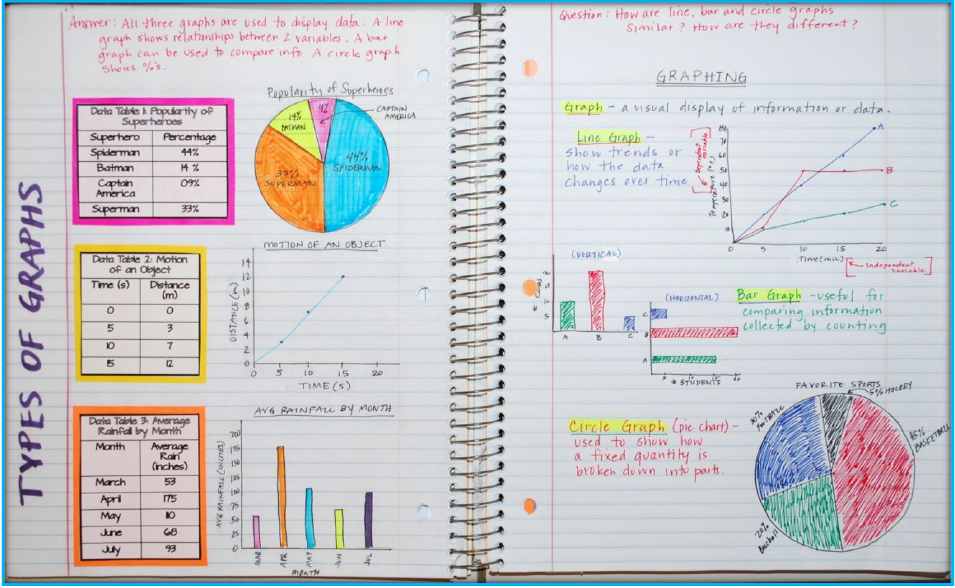 Answer: All three graphs are used to display data. A line
graph shows relationships between 2 variables. A bar
graph can be used to compare info. A circle graph
shows %'s.
TYPES OF GRAPHS
Data Table 1: Popularity of
Superheroes
Superhero Percentage
Spiderman 44%
Batman 14 %
Captain
America 09%
Superman 33%
Popularity of Superheroes
14%
BATMAN
9%
CAPTAIN
AMERICA
33%
SUPERMAN
44%
SPIDERMAN
Data Table 2: Motion
of an Object
Time (s) Distance
(m)
0 0
5 3
10 7
15 12
MOTION OF AN OBJECT
DISTANCE (m)
14
12
10
8
6
4
2
0
0 5 10 15 20
TIME (s)
Data Table 3: Average
Rainfall by Month
Month Average
Rain
(inches)
March 53
April 175
May 110
June 68
July 93
AVG RAINFALL BY MONTH
AVG RAINFALL (INCHES)
200
175
150
125
100
75
50
25
0
MAR APR MAY JUN JUL
MONTH
Question: How are line, bar and circle graphs
similar? How are they different?
GRAPHING
Graph - a visual display of information or data.
Line Graph -
show trends or
how the data
changes over time
Dependent
variable
Temperature (°C)
80
70
60
50
40
30
20
10
A
B
C
5 10 15 20
Time (min)
Independent
variable
(VERTICAL)
5
A B C
(HORIZONTAL)
C
B
A
5 10 15 20
# STUDENTS
Bar Graph - useful for
comparing information
collected by counting
Circle Graph (pie chart) -
used to show how
a fixed quantity is
broken down into parts.
FAVORITE SPORTS
5% HOCKEY
30%
FOOTBALL
45%
BASKETBALL
20%
Baseball